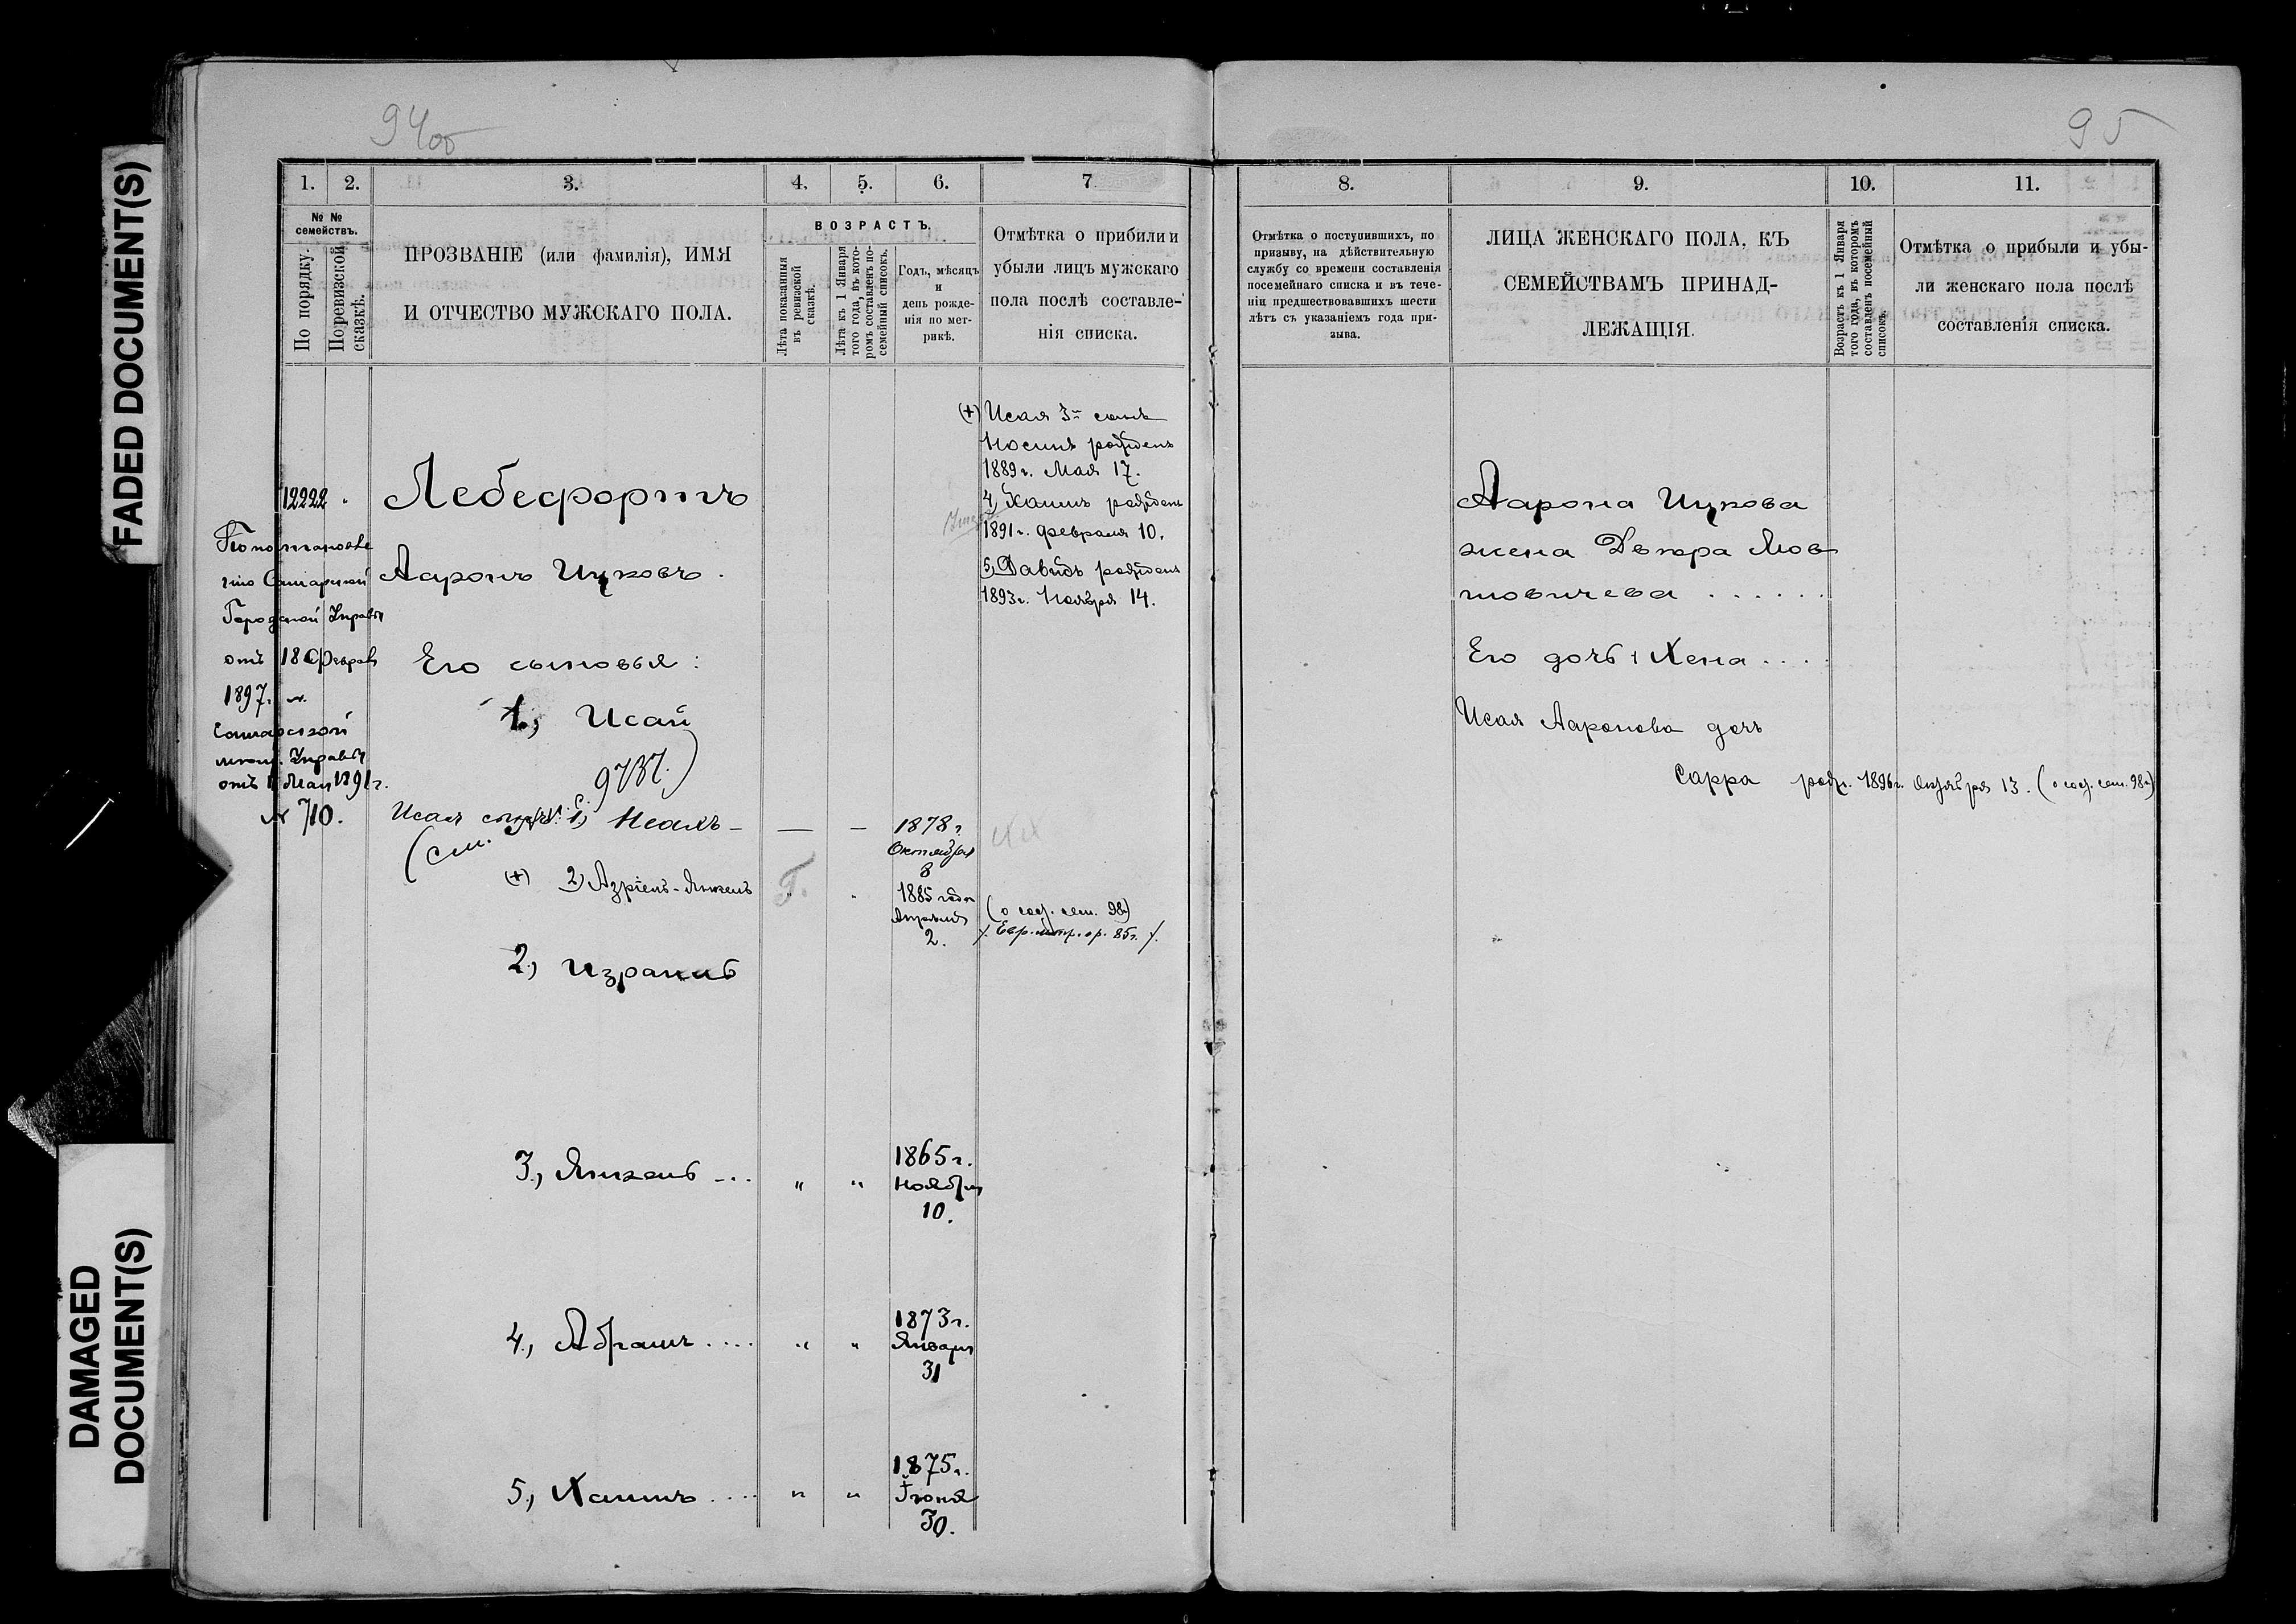 FADED DOCUMENT(S)
DAMAGED
DOCUMENT(S)
94об
1. 2. 3. 4. 5. 6. 7
№ №
семействъ.
По порядку.
По ревизской
сказкѣ.
ПРОЗВАНІЕ (или фамилія), ИМЯ
И ОТЧЕСТВО МУЖСКАГО ПОЛА.
ВОЗРАСТЪ.
Лѣта показанныя
въ ревизской
сказкѣ.
Лѣта къ 1 Января
того года, въ кото-
ромъ составленъ по-
семейный списокъ.
Годъ, мѣсяцъ
и
день рожде-
нія по мет-
рикѣ.
Отмѣтка о прибыли и
убыли лицъ мужскаго
пола послѣ составле-
нія списка.
(+) Исая 3й сынъ
Иосипъ рожденъ
1889 г. Мая 17.
4, Хаимъ рожденъ
1891 г. Февраля 10.
5, Давидъ рожденъ
1893 г. Ноября 14.
12222 "
Лебефортъ
Ааронъ Ицковъ.
Городской Управы
отъ 18 Февраля
1897 г. №
отъ Мая 1891 г.
№ 710.
Его сыновья:
1, Исай
973
Исая 1,
(см.
1878 г.
Октября
8
(+) 2) Азріель-Янкель
1885 года
Апрѣля
2.
(о сост. сем. 98)
/. Евр. метр. о р. 85 г. /.
2, Израиль
3, Янкель ...
" "
1865 г.
Ноября
10.
4, Абрамъ ....
" "
1873 г.
Января
31
5, Хаимъ ....
" "
1875 г.
Іюня
30.
95
8. 9. 10. 11.
Отмѣтка о поступившихъ, по
призыву, на дѣйствительную
службу со времени составленія
посемейнаго списка и въ тече-
ніи предшествовавшихъ шести
лѣтъ съ указаніемъ года при-
зыва.
ЛИЦА ЖЕНСКАГО ПОЛА, КЪ
СЕМЕЙСТВАМЪ ПРИНАД-
ЛЕЖАЩІЯ.
Возрастъ къ 1 Января
того года, въ которомъ
составленъ посемейный
списокъ.
Отмѣтка о прибыли и убы-
ли женскаго пола послѣ
составленія списка.
Аарона Ицкова
жена Двойра
Его дочь: Хена ....
Исая Ааронова дочь
Сарра род. 1896 г. Октября 13. (о сост. сем. 98 г.)